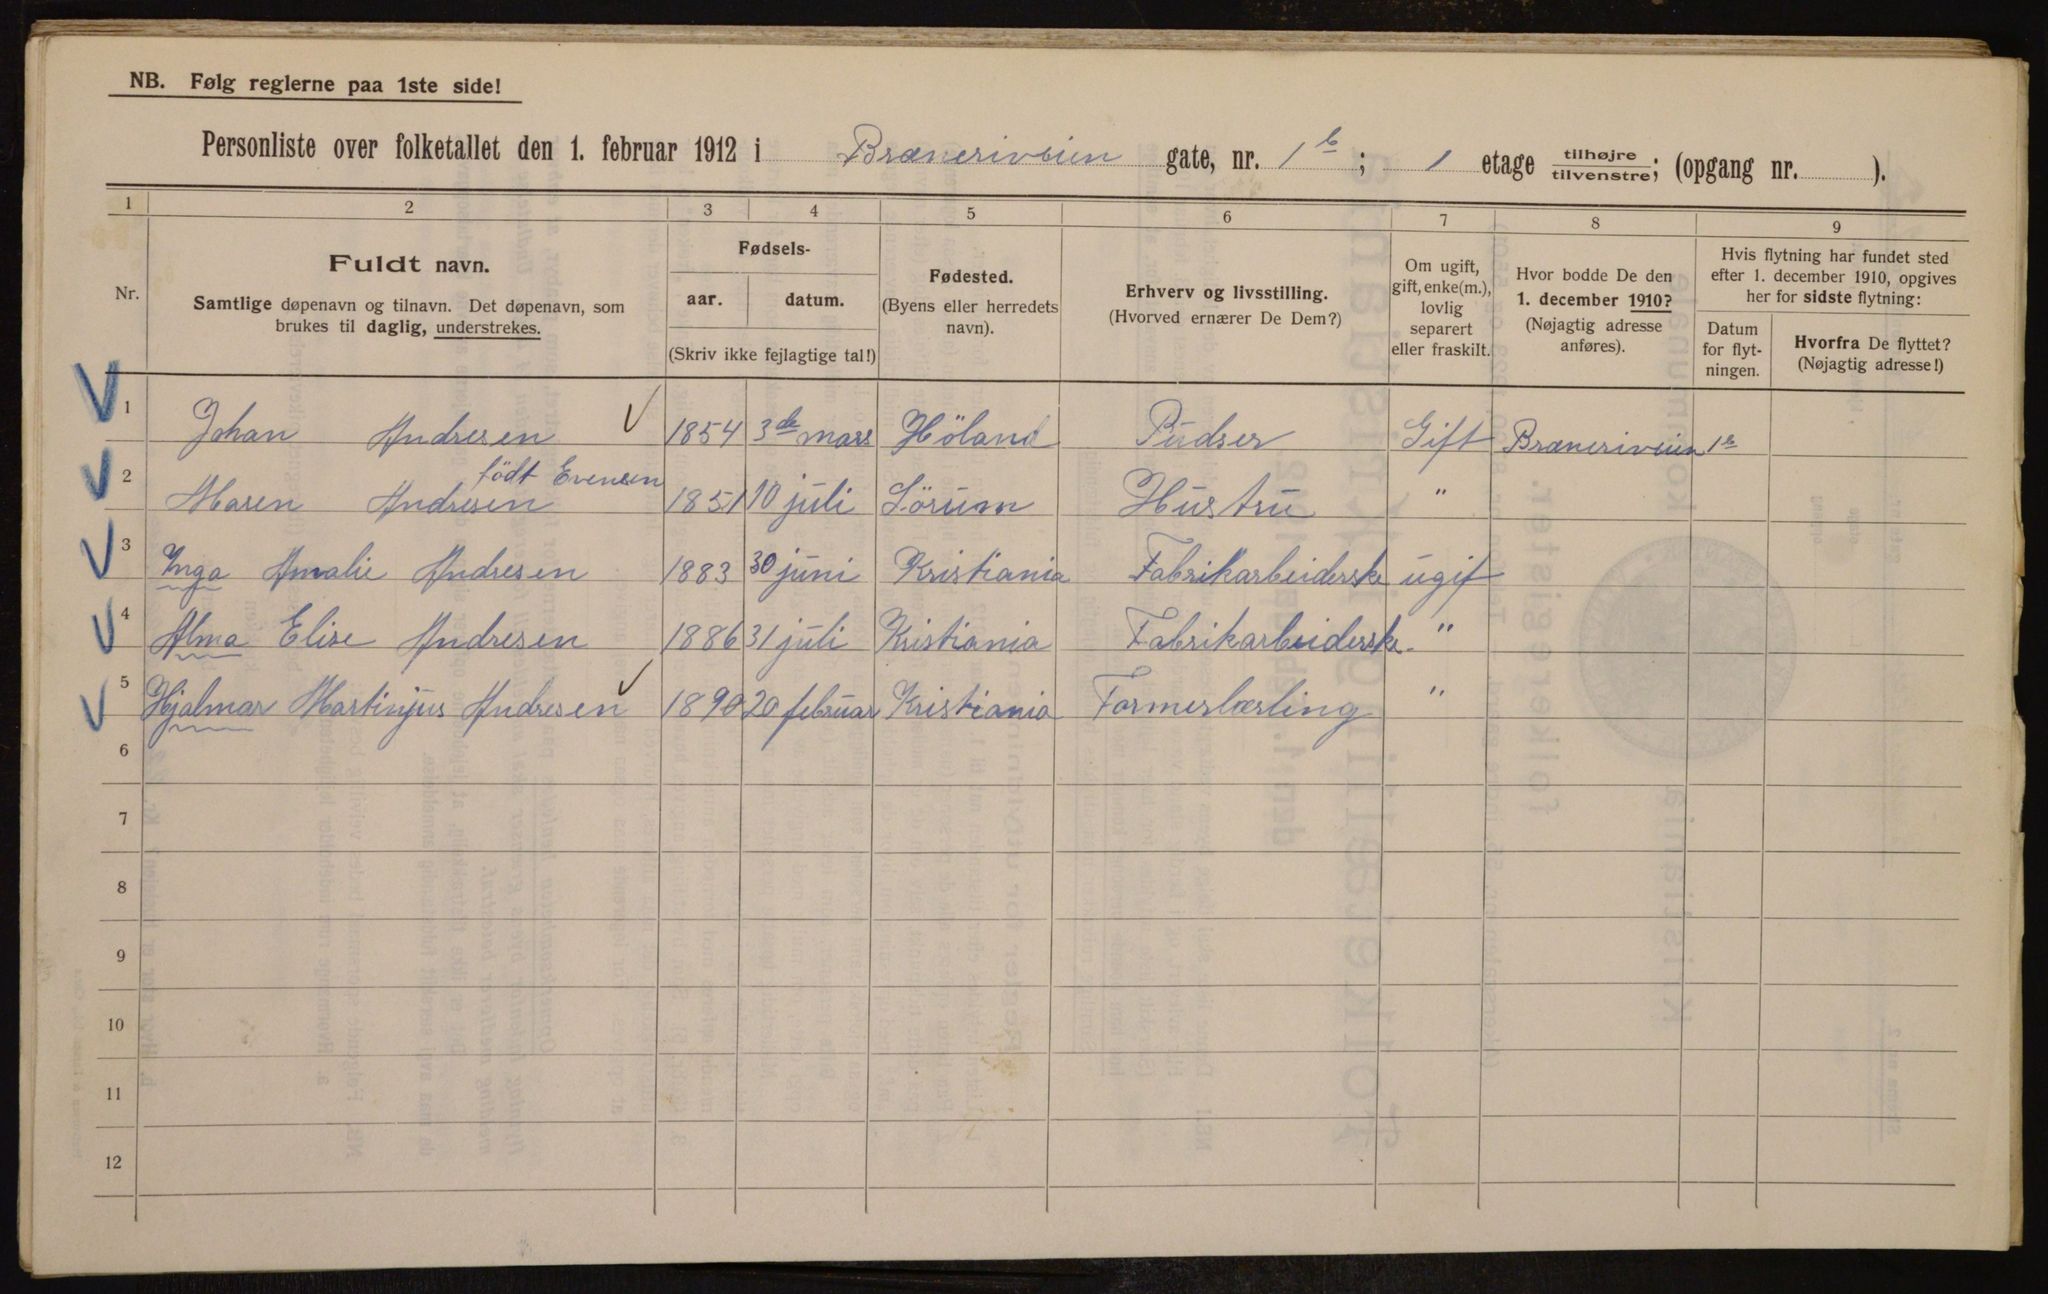 NB. Følg reglerne paa 1ste side!
Personliste over folketallet den 1. februar 1912 i Bræneriveien gate, nr. 1 b; 1 etage tilhøjre tilvenstre; (opgang nr. ).
1 2 3 4 5 6 7 8 9
Nr.
Fuldt navn.
Samtlige døpenavn og tilnavn. Det døpenavn, som
brukes til daglig, understrekes.
Fødsels-
aar. datum.
(Skriv ikke fejlagtige tal!)
Fødested.
(Byens eller herredets
navn).
Erhverv og livsstilling.
(Hvorved ernærer De Dem?)
Om ugift,
gift, enke(m.),
lovlig
separert
eller fraskilt.
Hvor bodde De den
1. december 1910?
(Nøjagtig adresse
anføres).
Hvis flytning har fundet sted
efter 1. december 1910, opgives
her for sidste flytning:
Datum
for flyt-
ningen.
Hvorfra De flyttet?
(Nøjagtig adresse!)
1 Johan Andresen 1854 3de mars Höland Pudser Gift Bræneriveien 1b
födt Evensen
2 Maren Andresen 1851 10 juli Sörum Hustru "
3 Inga Amalie Andresen 1883 30 juni Kristiania Fabrikarbeiderske ugif
4 Alma Elise Andresen 1886 31 juli Kristiania Fabrikarbeiderske "
5 Hjalmar Martinjus Andresen 1890 20 februar Kristiania Formerlærling "
6
7
8
9
10
11
12